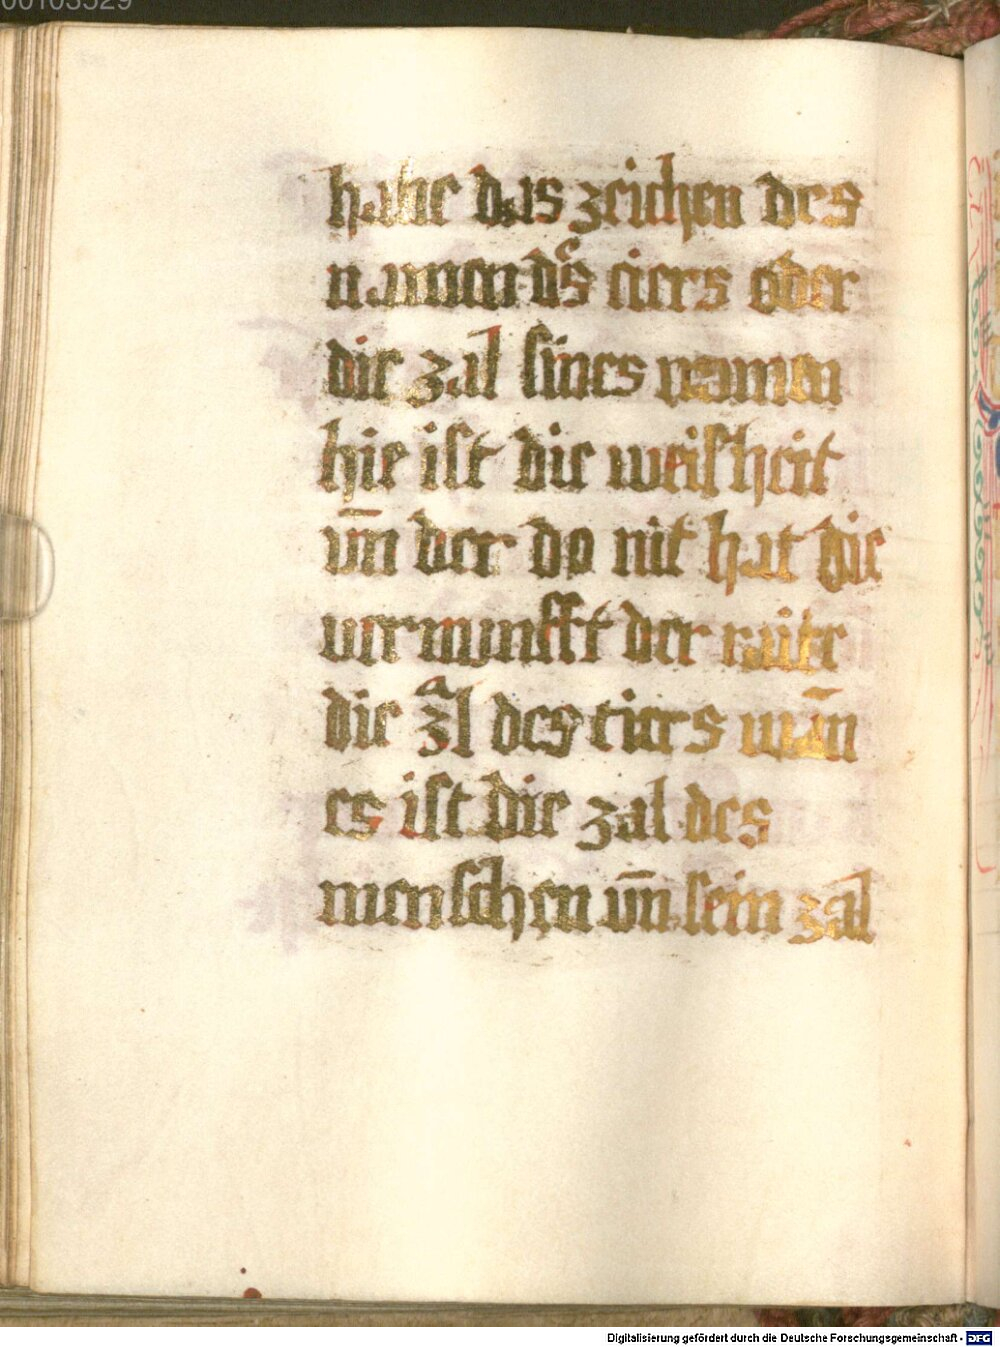 00103529
habe das zeichen des
namen dˢ tiers oder
die zal sines namen
hie ist die weisheit
vn̄ der do nit hat die
vernunfft der
die zͣl des tiers wan̄
es ist die zal des
menschen vn̄ sein zal
Digitalisierung gefördert durch die Deutsche Forschungsgemeinschaft - DFG